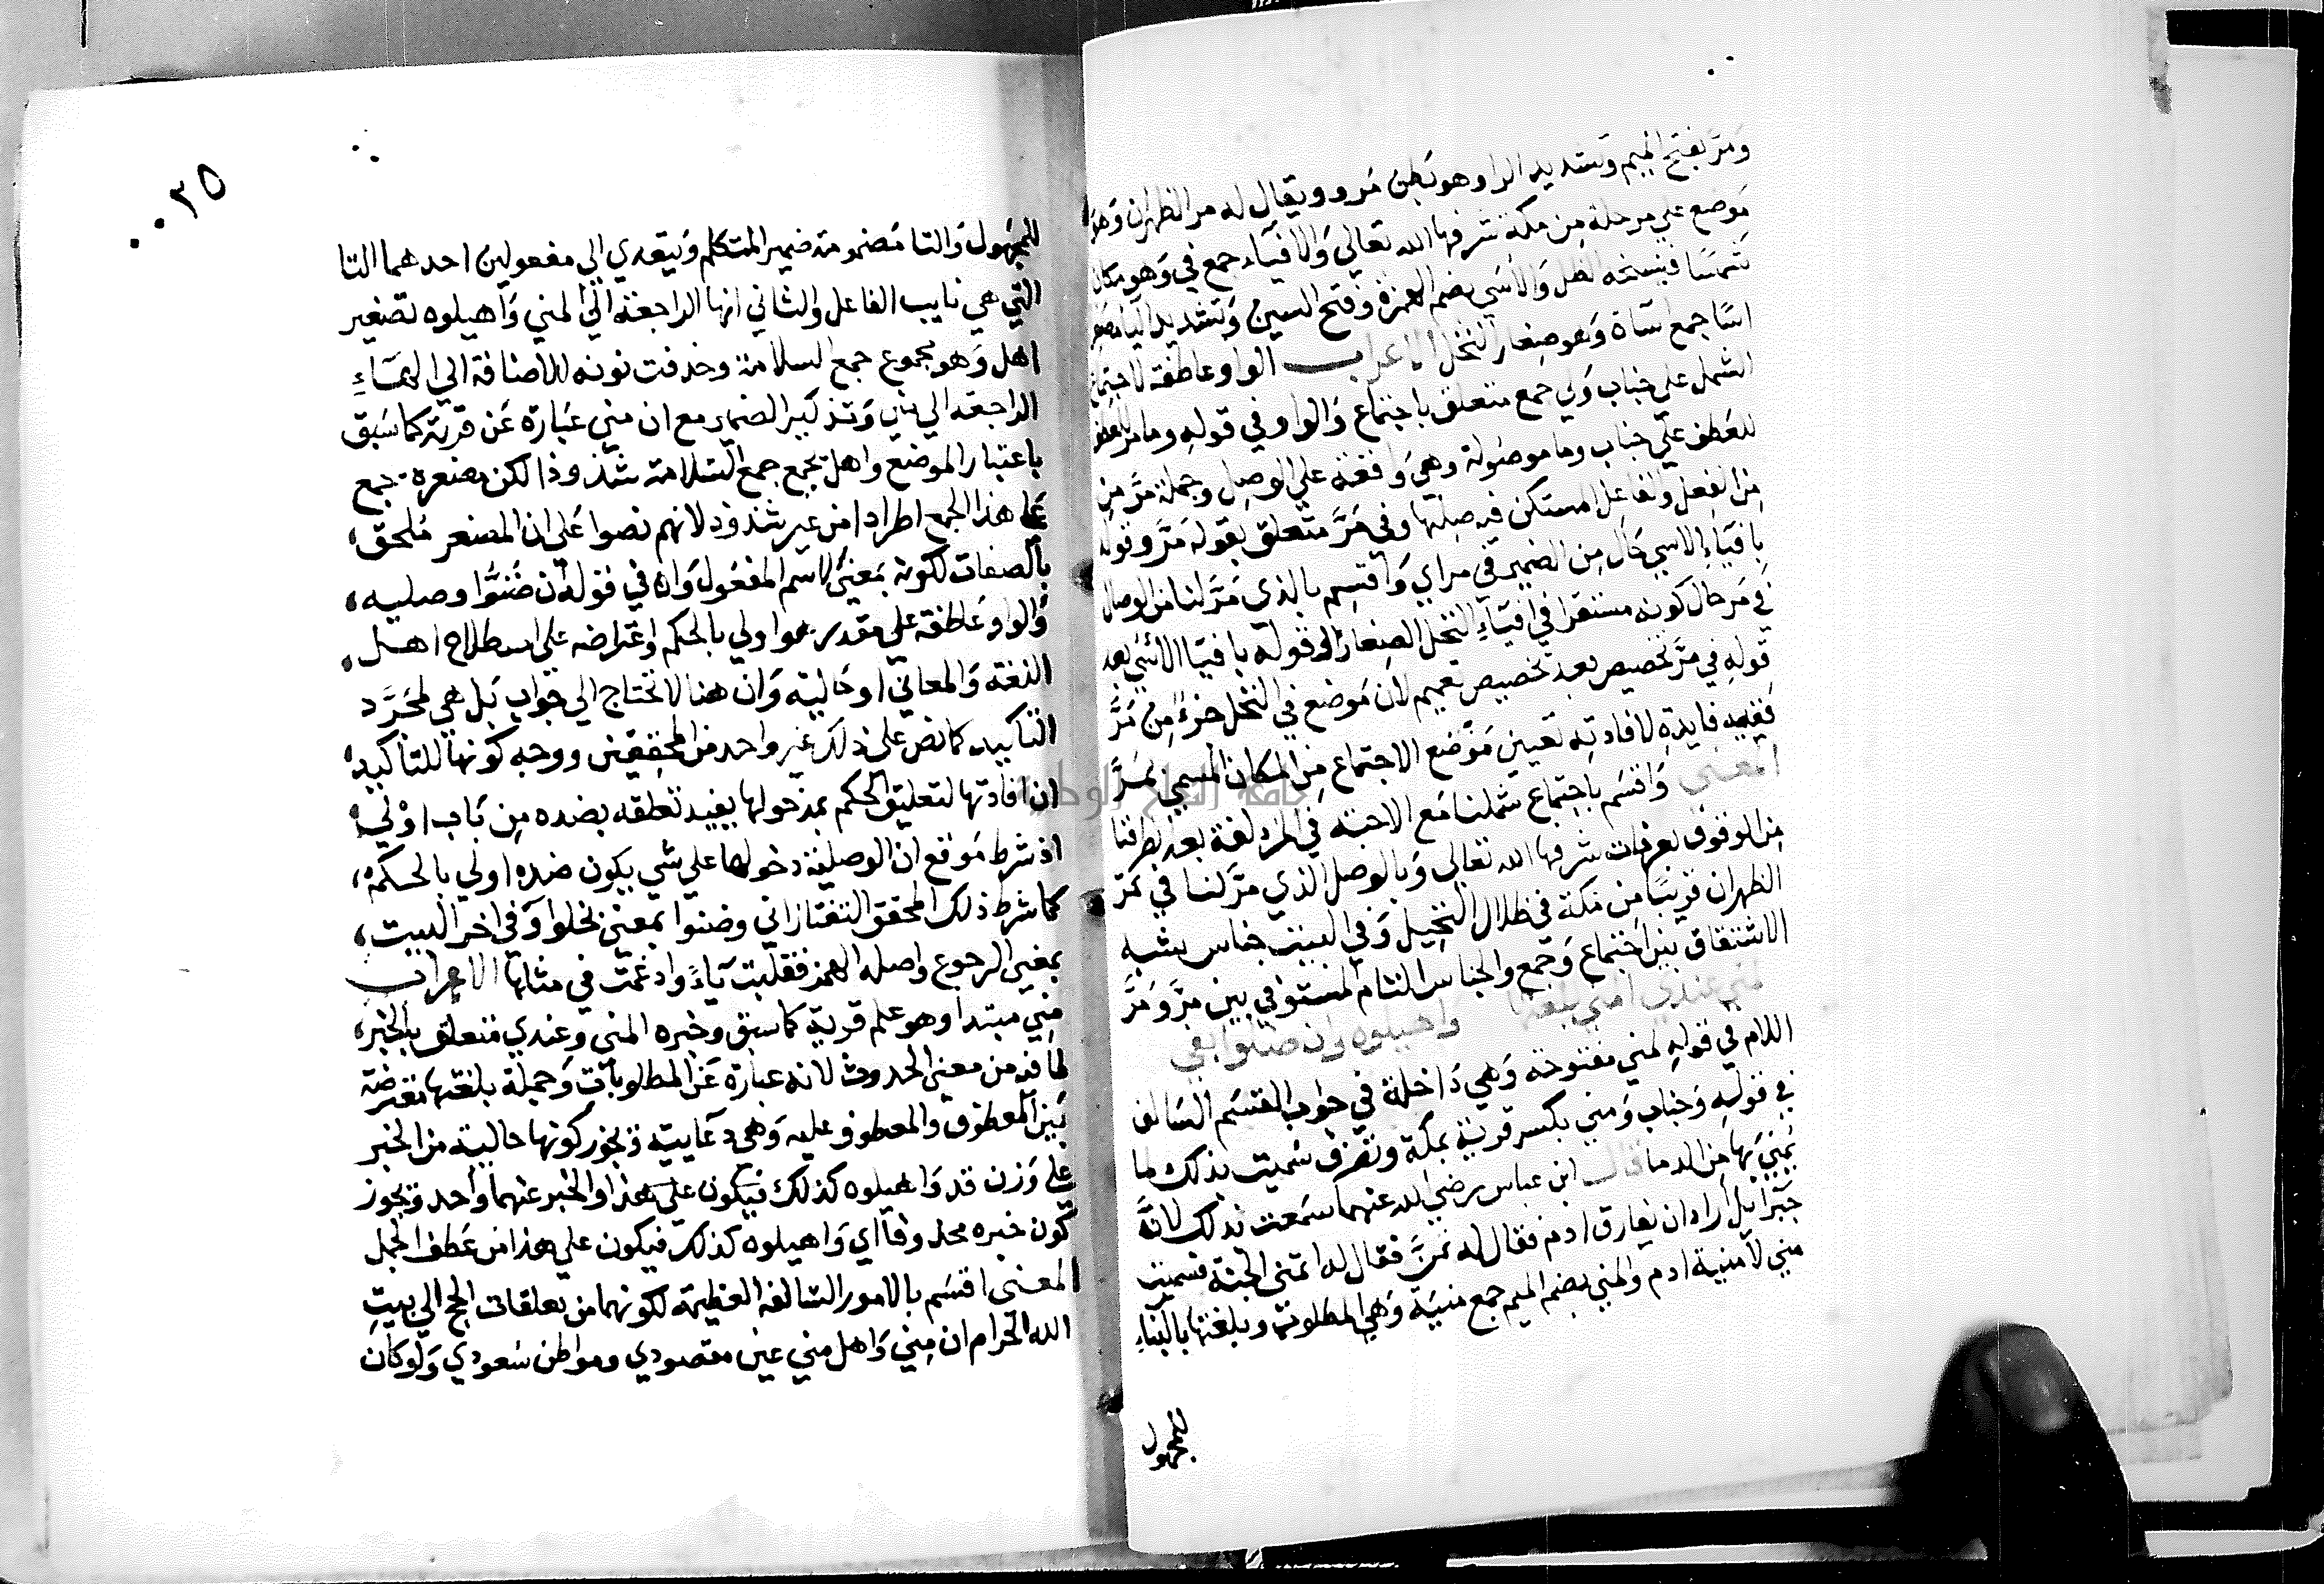 ومَرّ بفتح الميم وتشديد الرا وهو بطن مَرو ويقال له مر الظهران وهو
موضع علي مرحلة من مكة شرفها الله تعالي والافياء جمع في وهو مكان
شمسا فنسخه الظل والأُسَي بضم الهمزة وفتح السين وتشديد اليا
اسًا جمع اساة وهو صغار النخل الاعراب الواو عاطفة لاجتماع
الشمل علي جناب ولي جمع متعلق باجتماع والواو في قوله وما مر للعطف
للعطف علي جناب وما موصولة وهي واقعة علي الوصل وجملة مَرّ من
من الفعل والفاعل المستكن فيه صلتها وفي مَرَّ متعلق بقوله مَرَّ وقوله
بافياء الاسي حال من الضمير في مر اي واقسم بالذي مَرَّ لنا من الوصال
في مَر حال كونه مستقرا في افياء النخل الصغار او قوله بافيا الاُسَي بعد
قوله في مَرّ تخصيص بعد تخصيص تعميم لان موضع في النخل جزءٌ من مَرَّ
ففيه فايدة لافادته تعيين موضع الاجتماع من المكان المسمي بمَرَّ
المعني واقسم باجتماع شملنا مع الاحبة في المزدلفة بعد
من الوقوف بعرفات شرفها الله تعالي وبالوصل الذي مَرّ لنا في مَرّ
الظهران قريبًا من مكة في ظلال النخيل وفي البيت جناس يشبه
الاشتقاق بين اجتماع وجمع والجناس التام المستوفي بين مَرَّ ومَرَّ
لمني عندي المني بلغتها واهيلوه وان ضنوا بفي
اللام في قوله لمني مفتوحة وهي داخلة في جواب القسم السالف
في قوله وجناب ومني بكسر قرية بمكة وتصرف سميت بذلك لما
يمني بها من الدما قال ابن عباس رضي الله عنهما سمعت بذلك لانَّ
جبرايل اراد ان يفارق ادم فقال له تمنَّ فقال له اتمني الجنة فسميت
مني لأمنية ادم والمني بضم الميم جمع منية وهي المطلوبة وبلغتها بالبناء
للمجهول
٠٠٣٥
للمجهول والتا مضمومة ضمير المتكلم ويتعدي الي مفعولين احدهما التا
التي هي نايب الفاعل والثاني انها الراجعة الي لمني واهيلوه تصغير
اهل وهو مجموع جمع السلامة وحذفت نونه للاضافة الي الهاءِ
الراجعة الي مني وتذكير الضمير مع ان مني عبارة عن قرية كما سبق
باعتبار الموضع واهل يجمع جمع السلامة شذوذا لكن مصغره يجمع
علي هذا الجمع اطرادا من غير شذوذ لانهم نصوا علي ان المصغر ملحق
بالصفات لكونه بمعني لاسم المفعول وان في قوله ان ضنوا وصليه
والواو عاطفة علي مقدر هو اولي بالحكم واعتراضه علي اسطلاح اهل
اللغة والمعاني او حالية وان هنا لا تحتاج الي جواب بل هي لمجرّد
التاكيد كما نص علي ذلك غير واحد من المحققين ووجه كونها للتاكيد
ان افادتها لتعليق الحكم بمدخولها يفيد تعلقه بضده من باب اولي
اذ شرط موقع ان الوصلية دخولها علي شي يكون ضده اولي بالحكم
كما شرط ذلك المحقق التفتازاني وضنوا بمعني بخلوا وفي اخر البيت
بمعني الرجوع واصله الهمز فقلبت ياءً وادغمت في مثلها الاعراب
مني مبتدا وهو علم قرية كما سبق وخبره المني وعندي متعلق بالخبر
لما فيه من معني الحدوث لانه عبارة عن المطلوبات وجملة بلغتها معترضة
بين المعطوف والمعطوف عليه وهي دعايية ويجوز كونها حالية من الخبر
علي وزن قد واهيلوه كذلك فيكون علي هذا والخبر عنهما واحد ويجوز
كون خبره محذوفا اي واهيلوه كذلك فيكون علي هذا من عطف الجمل
المعني اقسم بالامور السالفة العظيمة لكونهما من تعلقات الحج الي بيت
الله الحرام ان مِني واهل مني عين مقصودي ومواطن سعودي ولو كان
جامعة النجاح الوطنية